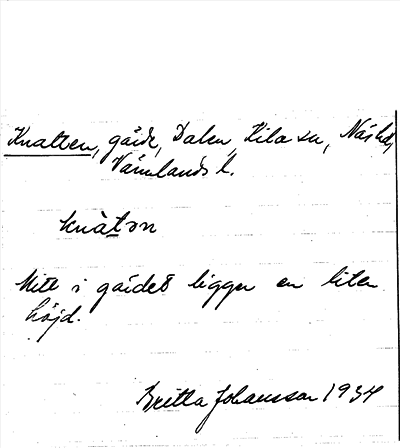 Knatten, gärde, Dalen, Kila sn, Näs hd,
Värmlands l.
knàtən
Mitt i gärdet ligger en liten
höjd.
Britta Johansson 1934